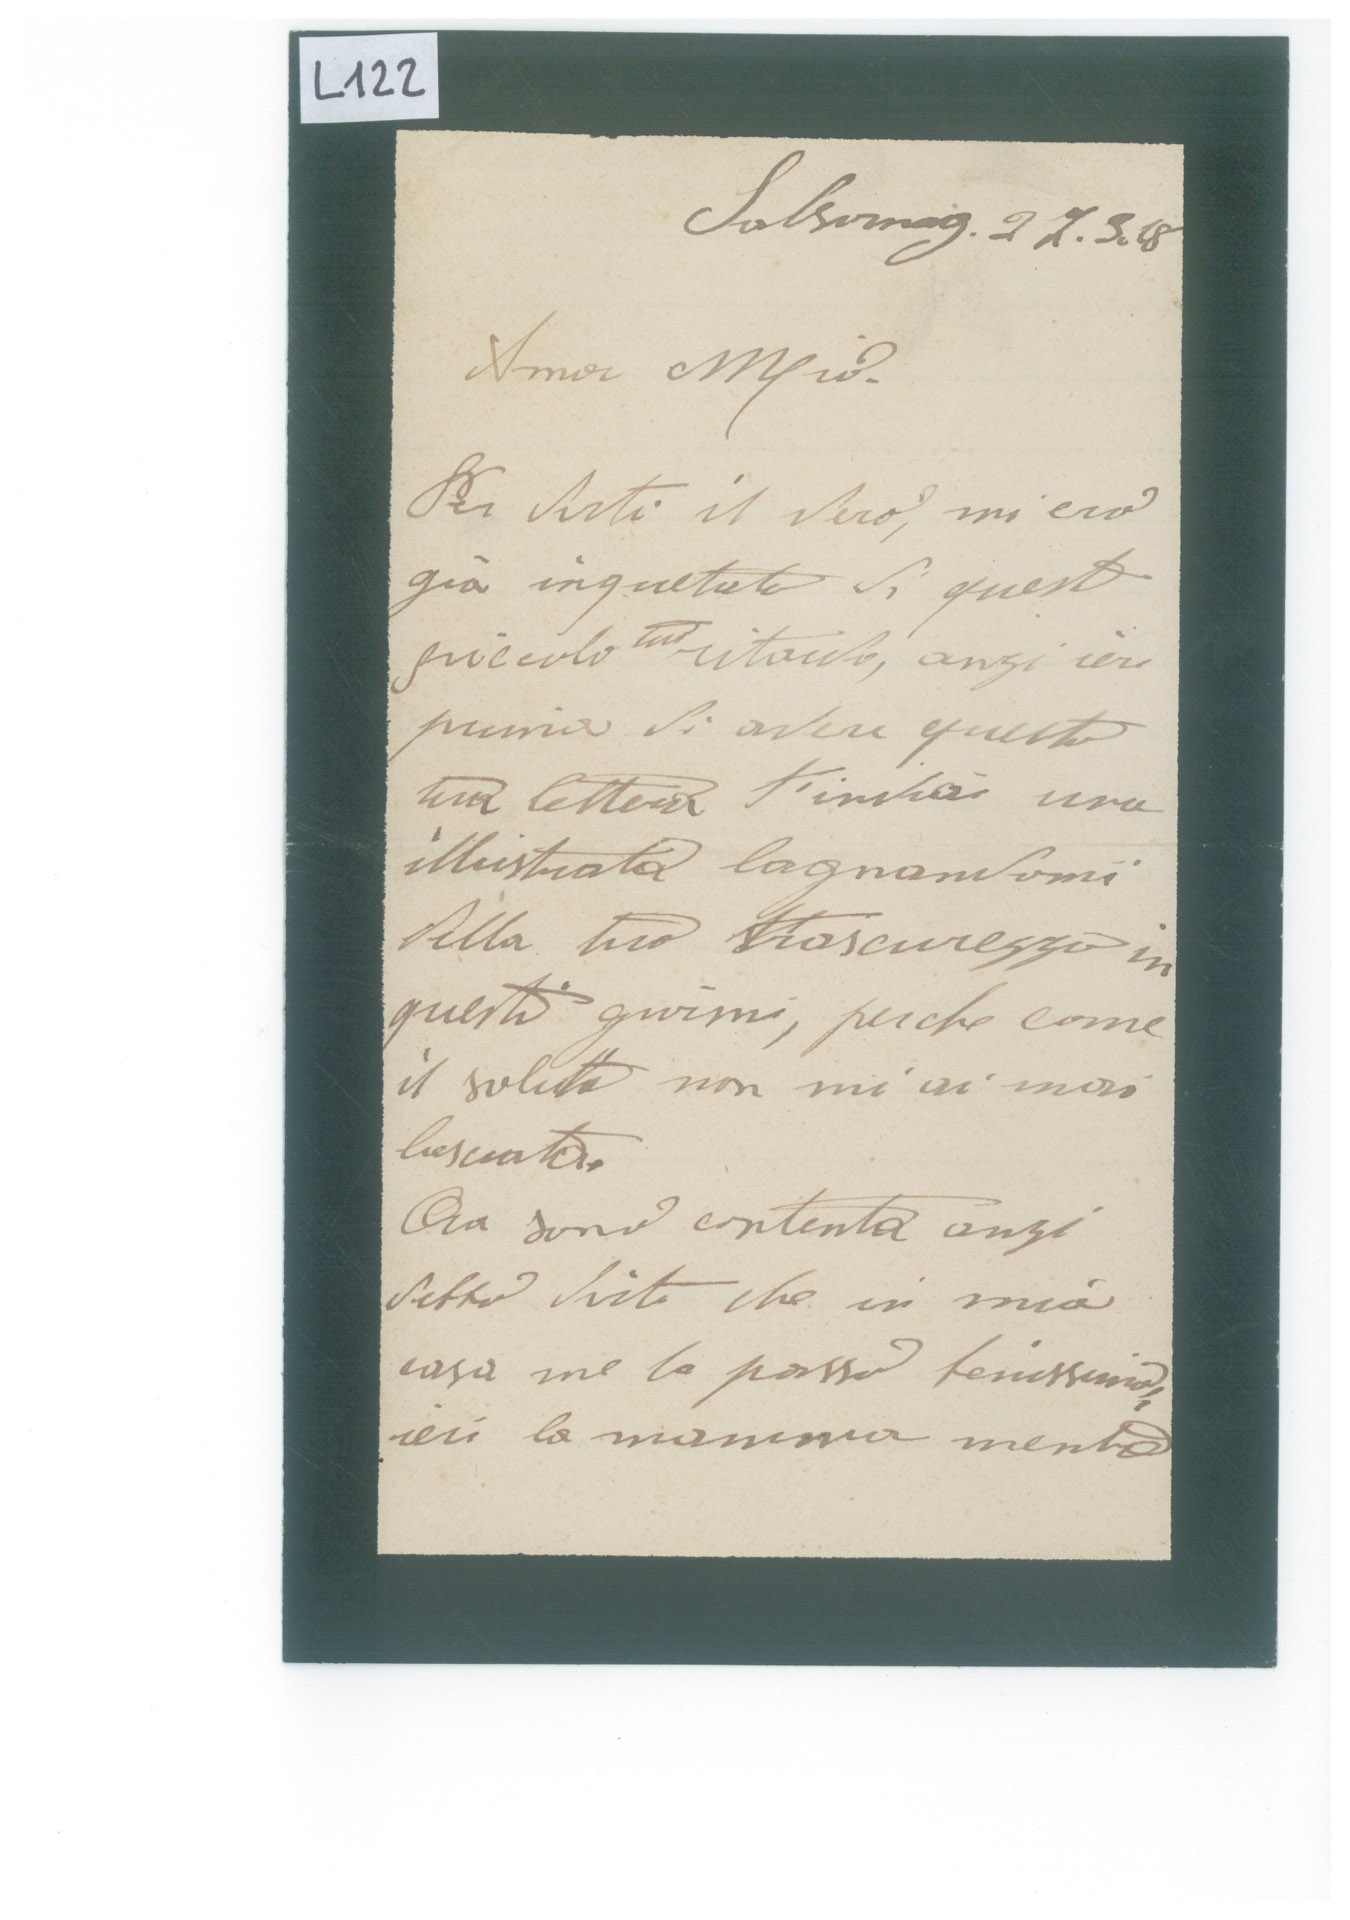 L122
Salsomag. 27.3.18
Amor Mio.
Per dirti il vero, mi ero
già inquetata di quest
piccolo tuo ritardo, anzi ieri
prima di avere questa
tua lettera t'inviai una
illustrata lagnandomi
della tua trascurezza in
questi giorni, perche come
il solito non mi ai mai
lasciata.
Ora sono contenta anzi
debbo dirti che in mia
casa me la passo benissimo,
ieri la mamma mentre